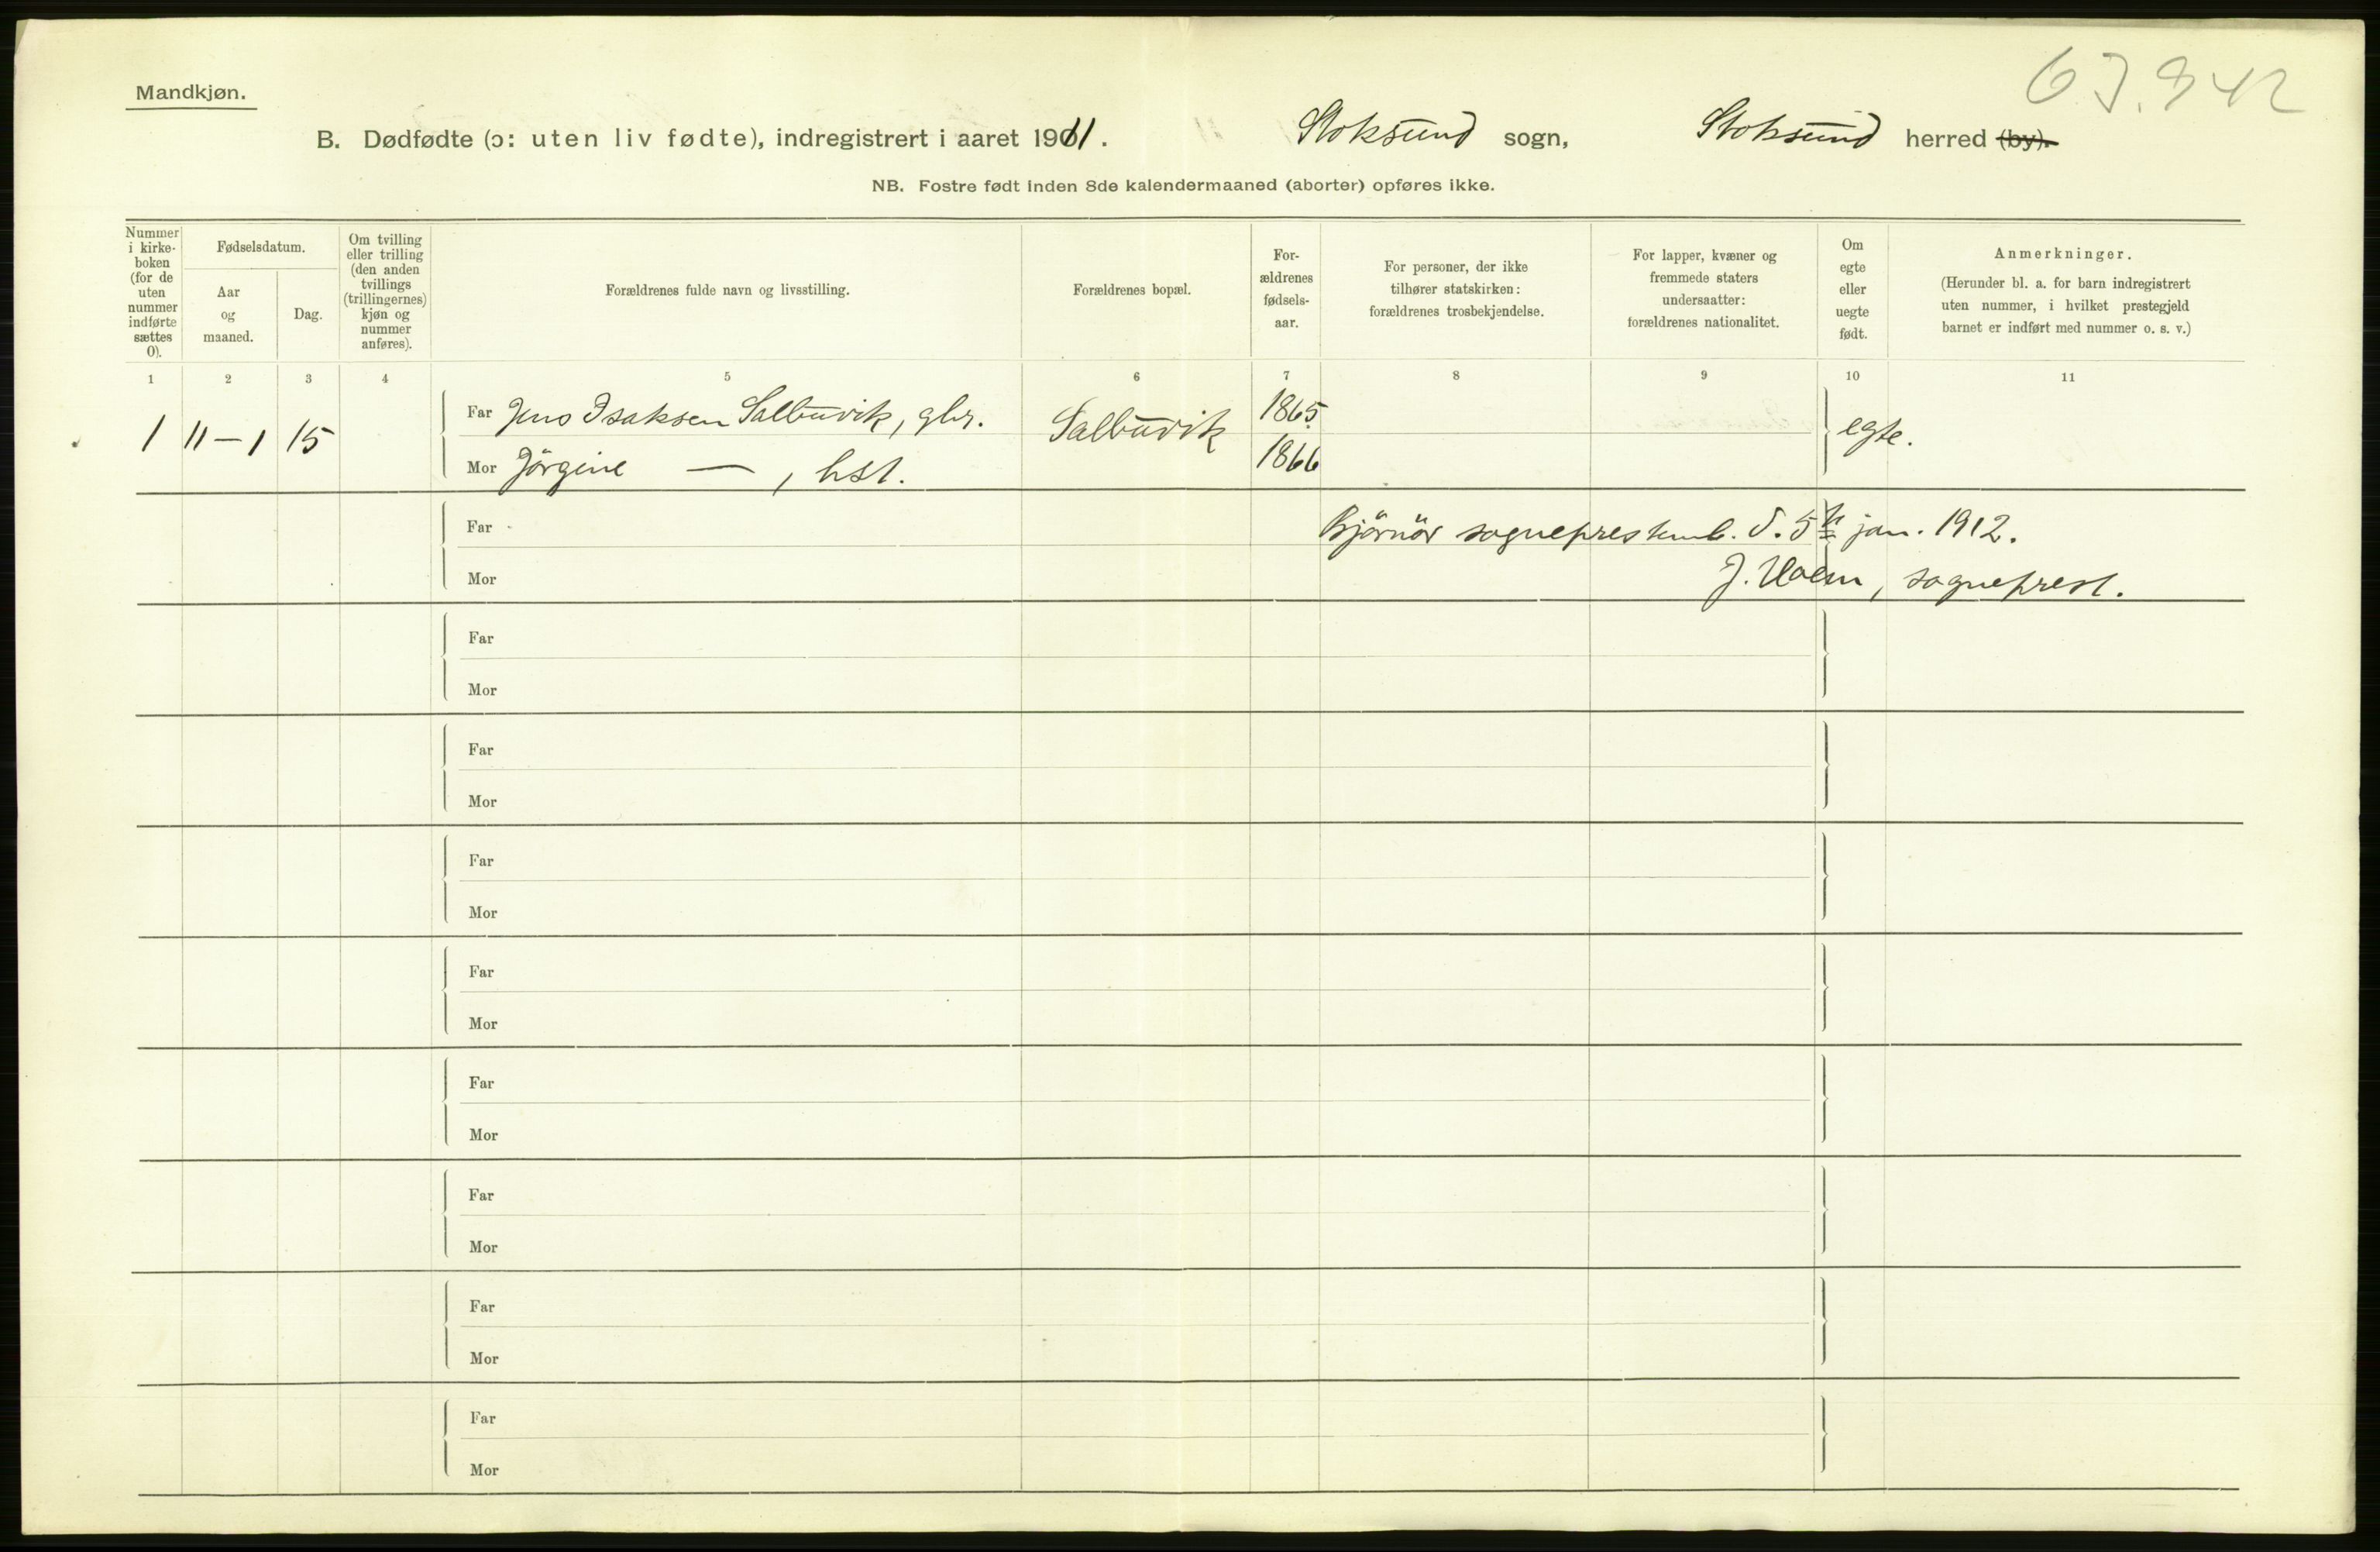 Mandkjøn.
B. Dødfødte (ɔ: uten liv fødte), indregistrert i aaret 1911. Stoksund sogn, Stoksund herred (by).
NB. Fostre født inden 8de kalendermaaned (aborter) opføres ikke.
Nummer
i kirke-
boken
(for de
uten
nummer
indførte
sættes
0).
Fødselsdatum.
Aar
og
maaned.
Dag.
Om tvilling
eller trilling
(den anden
tvillings
(trillingernes)
kjøn og
nummer
anføres).
Forældrenes fulde navn og livsstilling.
Forældrenes bopæl.
For-
ældrenes
fødsels-
aar.
For personer, der ikke
tilhører statskirken:
forældrenes trosbekjendelse.
For lapper, kvæner og
fremmede staters
undersaatter:
forældrenes nationalitet.
Om
egte
eller
uegte
født.
Anmerkninger.
(Herunder bl. a. for barn indregistrert
uten nummer, i hvilket prestegjeld
barnet er indført med nummer o. s. v.)
1 2 3 4 5 6 7 8 9 10 11
1 11–1 15
Far Jens Isaksen Salbuvik, gbr. 1865
Salbuvik egte.
Mor Jörgine — , hst. 1866
Far Bjørnör sogneprestemb. d. 5te jan. 1912.
Mor sogneprest.
Far
Mor
Far
Mor
Far
Mor
Far
Mor
Far
Mor
Far
Mor
Far
Mor
Far
Mor